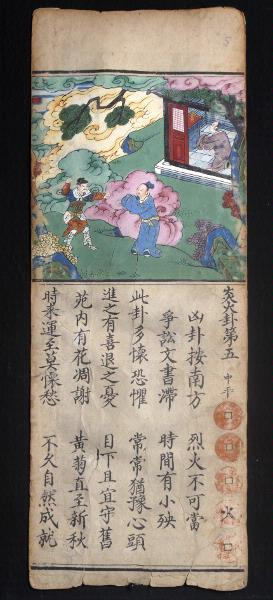 炎火卦第五 中平
口
口
口
火
口
凶卦按南方 烈火不可當
爭訟文書滯 時間有小殃
此卦多懷恐懼 常常猶豫心頭
進之有喜退之憂 目下且宜守舊
苑内有花凋謝 黃菊直至新秋
時來運至莫懷愁 不久自然成就